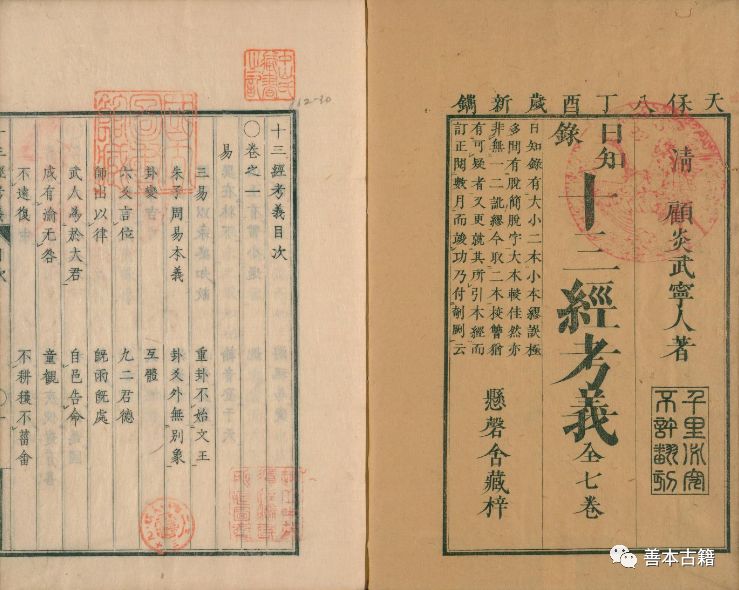 天保八丁酉歲新鐫
清 顧炎武寧人著
千里必究
不許翻刻
日知錄
十三經考義全七卷
日知錄有大小二本小本繆誤極
多間有脫簡脫字大本較佳然亦
非無一二訛繆今取二本挍讐猶
有可疑者又更就其所引本經而
訂正閱數月而竣功乃付剞劂云
懸磬舍藏梓
十三經考義目次
〇卷之一
易
三易 重卦不始文王
朱子周易本義 卦爻外無別象
卦變 互體
六爻言位 九二君德
師出以律 既雨既處
武人為於大君 自邑告命
成有渝无咎 童觀
不遠復 不耕穫不菑畬
善本古籍